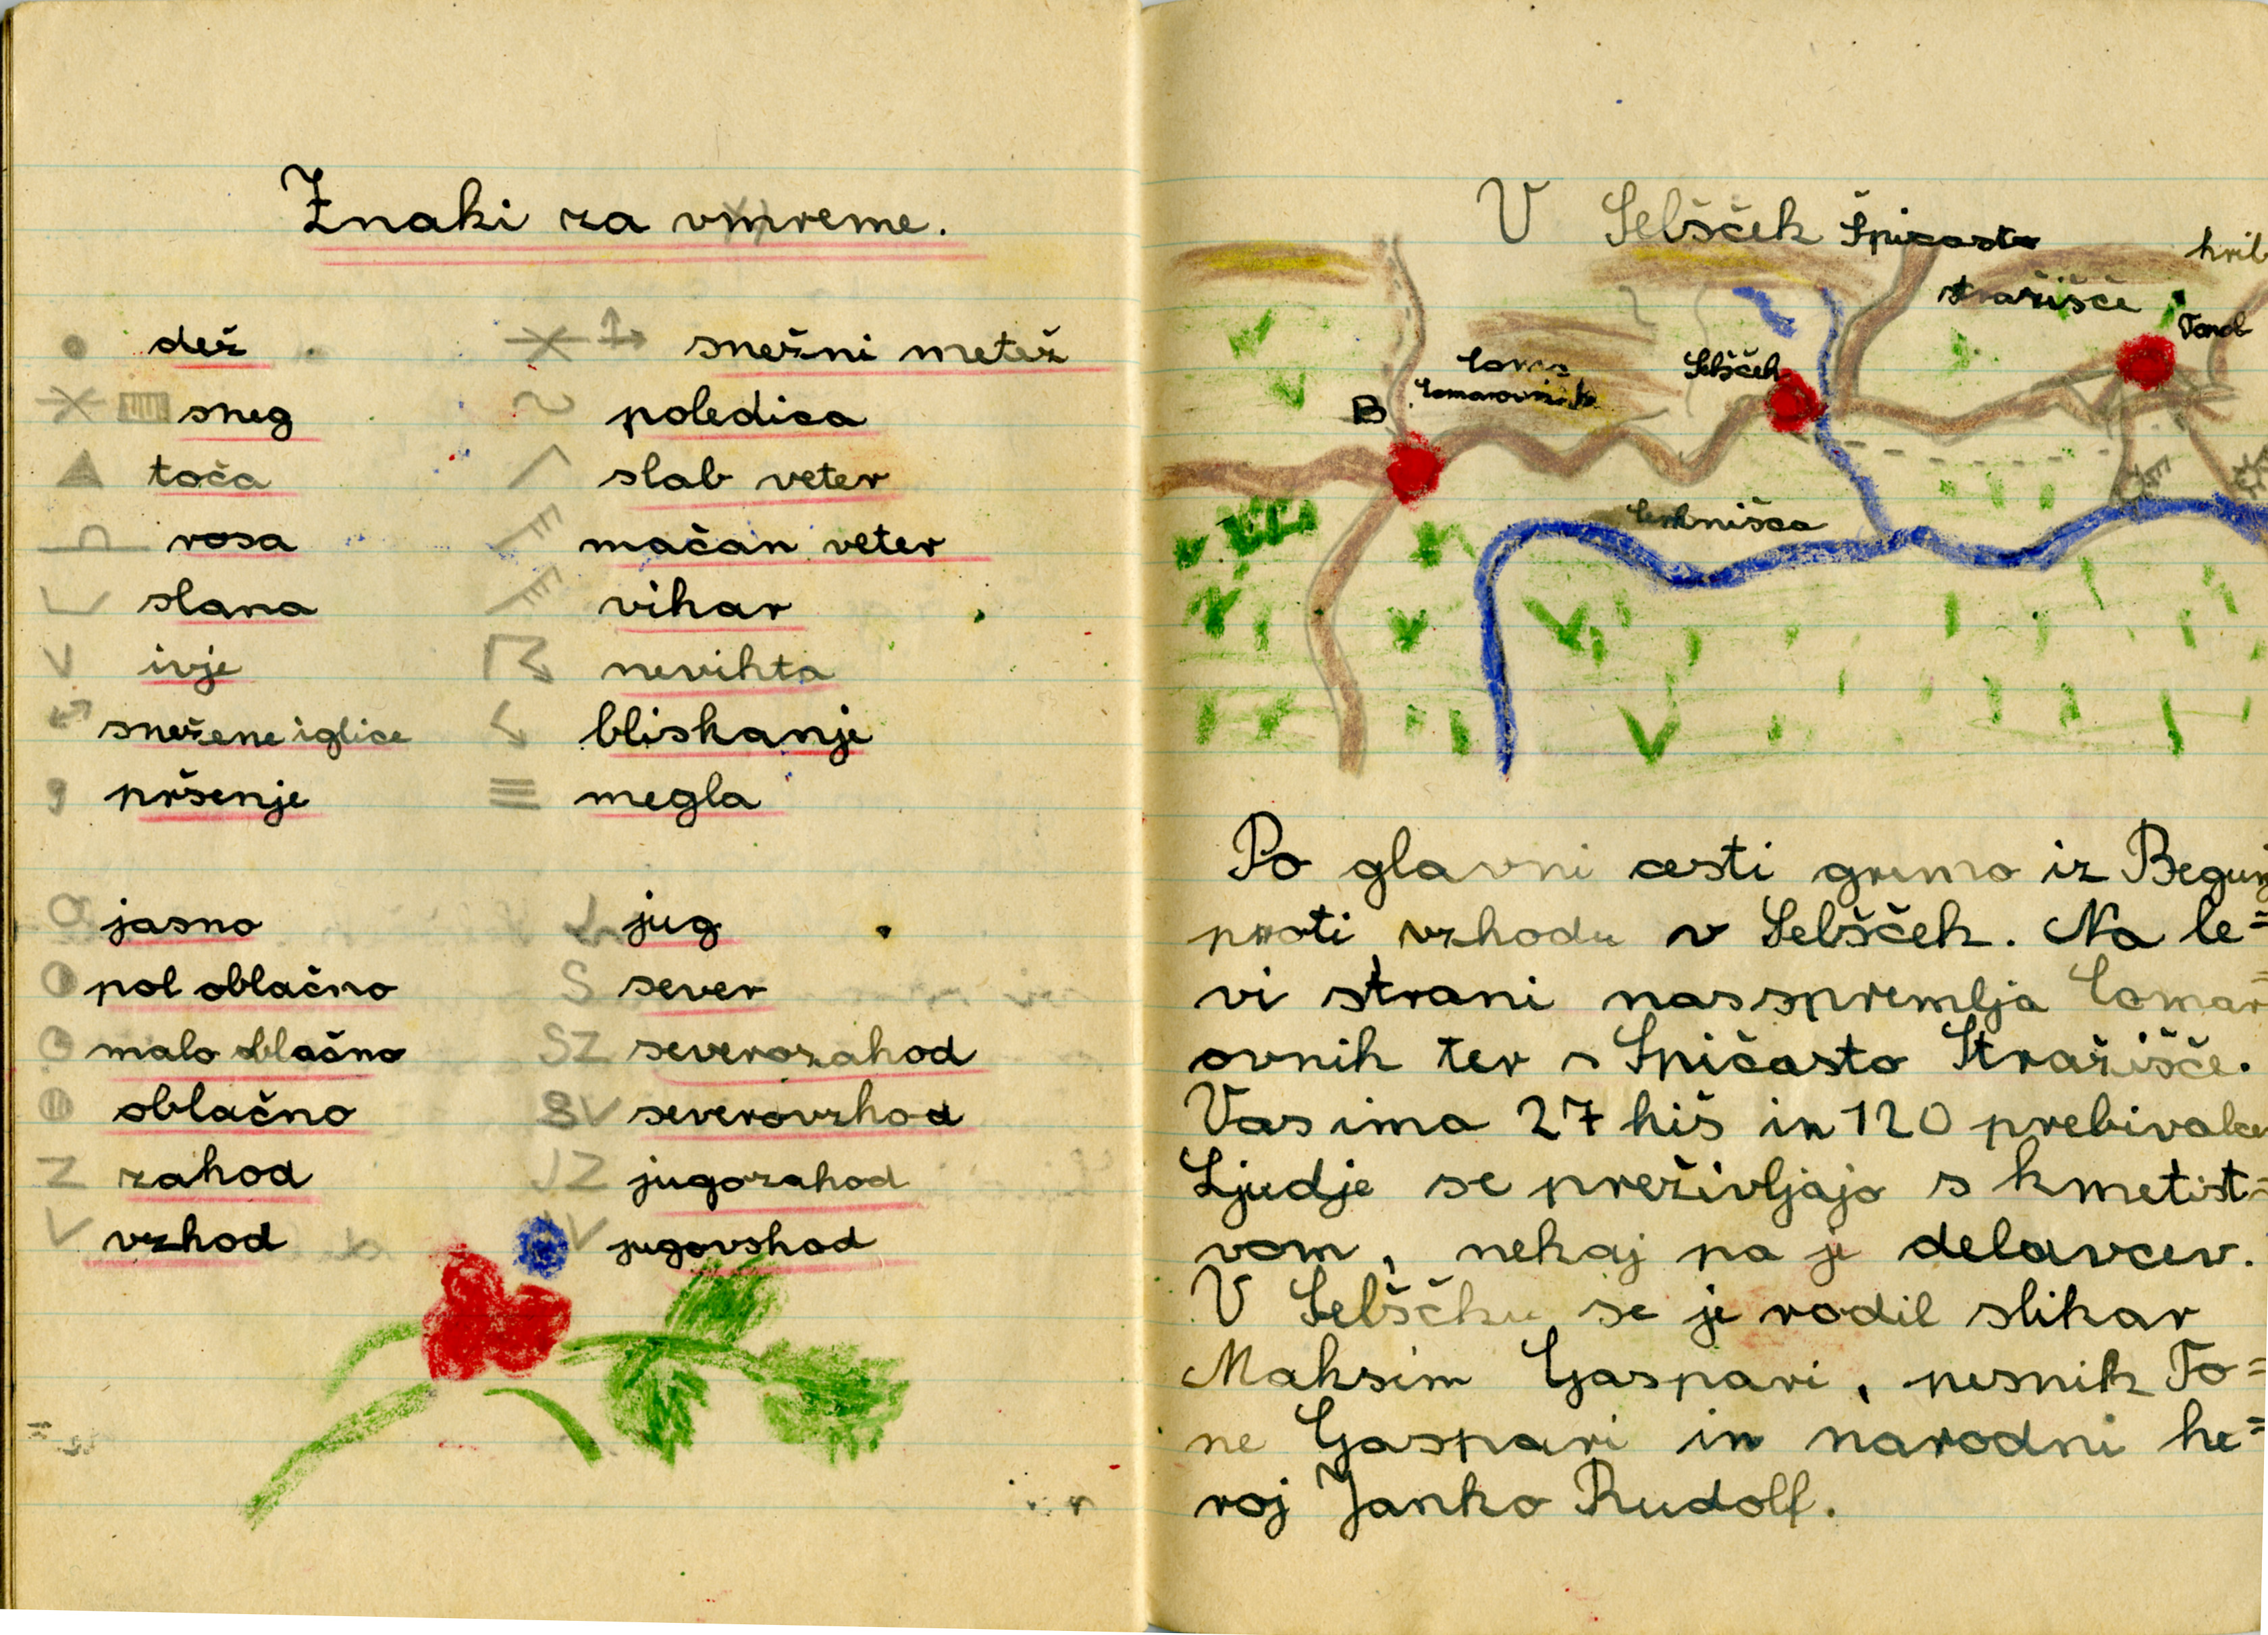 Znaki za vmreme.
dež
sneg
toča
rosa
slana
ivje
snežene iglice
pršenje
snežni metež
poledica
slab veter
mačan veter
vihar
nevihta
bliskanje
megla
jasno
pol oblačno
malo oblačno
oblačno
Z zahod
V vzhod
J jug
S sever
SZ severozahod
SV severovzhod
JZ jugozahod
JV jugovshod
V Selšček
Špicasto
hrib
stražišče
Selšček
B
Cerknišca
Po glavni cesti gremo iz Begunj
proti vzhodu v Selšček. Na le=
vi strani nas spremlja Comar=
ovnik ter s Špičasto Stražišče.
Vas ima 27 hiš in 120 prebivalce
Ljudje se preživljajo s kmetist=
vom, nekaj pa je delavcev.
V Selščku se je rodil slikar
Maksim Gaspari, pesnik To=
ne Gaspari in narodni he=
roj Janko Rudolf.